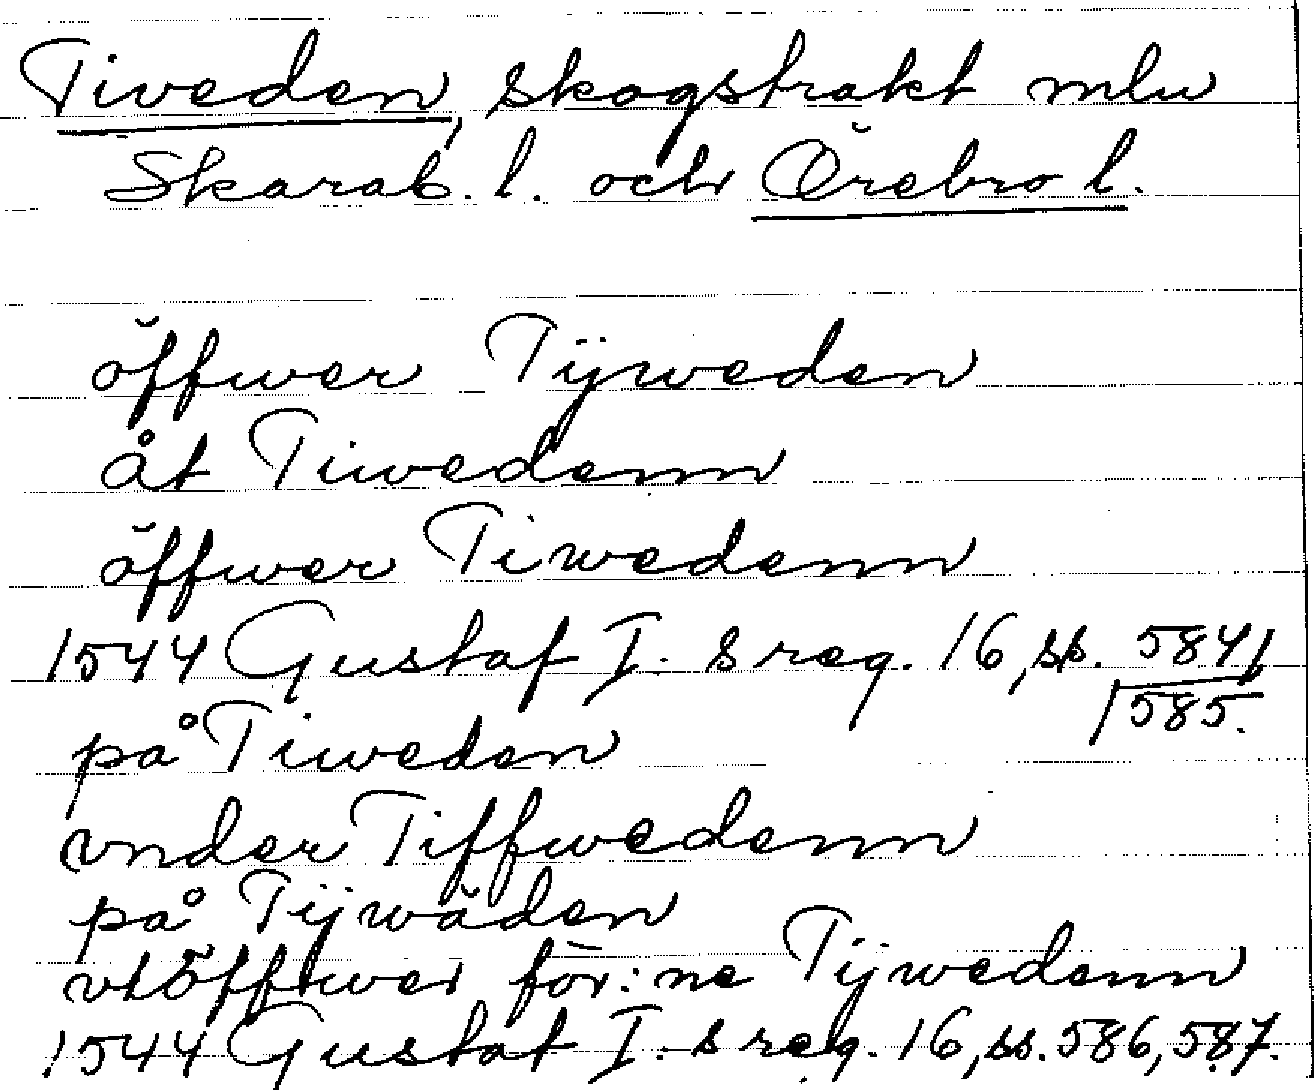 Tiveden, skogstrakt mlu
Skarab. l. och Örebro l.
öffwer Tijweden
åt Tiwedenn
öffwer Tiwedenn
1544 Gustaf I. s reg. 16, ss. 584,
585.
på Tiweden
vnder Tiffwedenn
på Tijwäden
vtöffwer för:ne Tijwedenn
1544 Gustaf I. s reg. 16, ss. 586, 587.